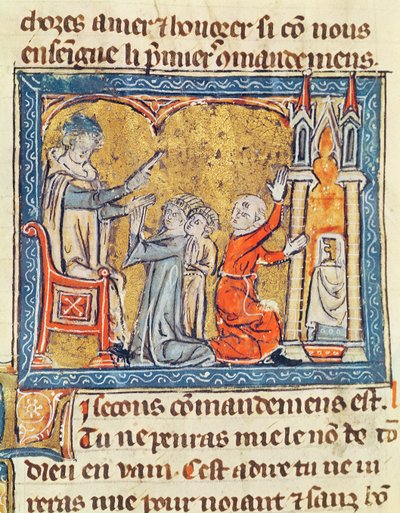 chozes amer ⁊ honorer si cō nous
enseigne li p̄miers ꝯmandemens.
li secons cōmandemens est.
Tu ne penras mie le nō de tō
dieu en vain. Cest a dire tu ne iu
reras mie pour noiant ⁊ sanz bō